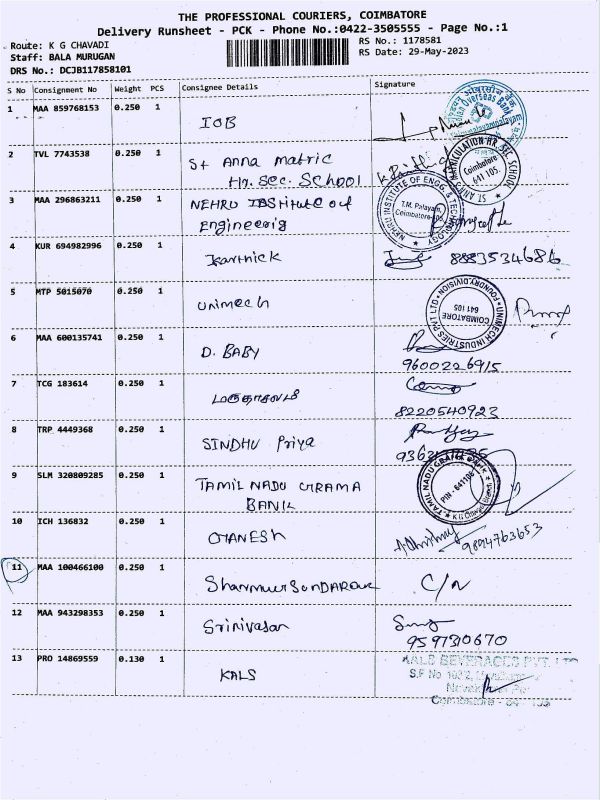 THE PROFESSIONAL COURIERS, COIMBATORE
Delivery Runsheet - PCK - Phone No.:0422-3505555 - Page No.:1
Route: K G CHAVADI
RS No.: 1178581
Staff: BALA MURUGAN
RS Date: 29-May-2023
DRS No.: DCJB117858101
S No Consignment No Weight PCS Consignee Details Signature
1 MAA 859768153 0.250 1 IOB
Indian Overseas Bank
2 TVL 7743538 0.250 1 St Anna matric
Hr. Sec. School
ST. ANN'S MATRICULATION HR. SEC. SCHOOL
Coimbatore
641 105.
3 MAA 296863211 0.250 1 NEHRU INSTITUTE of
Engineering
NEHRU INSTITUTE OF ENGG. & TECHNOLOGY
T.M. Palayam,
Coimbatore-105
4 KUR 694982996 0.250 1 Karthick 8883534686
5 MTP 5015070 0.250 1 unimech
UNIMECH INDUSTRIES PVT LTD
FOUNDRY DIVISION
COIMBATORE
641 105
6 MAA 600135741 0.250 1 D. BABY
9600226915
7 TCG 183614 0.250 1 மருதாசலம்
8220540923
8 TRP 4449368 0.250 1 SINDHU Priya
9 SLM 320809285 0.250 1 TAMIL NADU GRAMA
BANK
TAMIL NADU GRAMA BANK
PIN - 641105
10 ICH 136832 0.250 1 GANESH
9894763653
11 MAA 100466100 0.250 1 C/N
12 MAA 943298353 0.250 1 Srinivasan
9597310670
13 PRO 14869559 0.130 1 KALS
KALS BEVERAGES PVT. LTD
S.F No
Coimbatore - 641 105